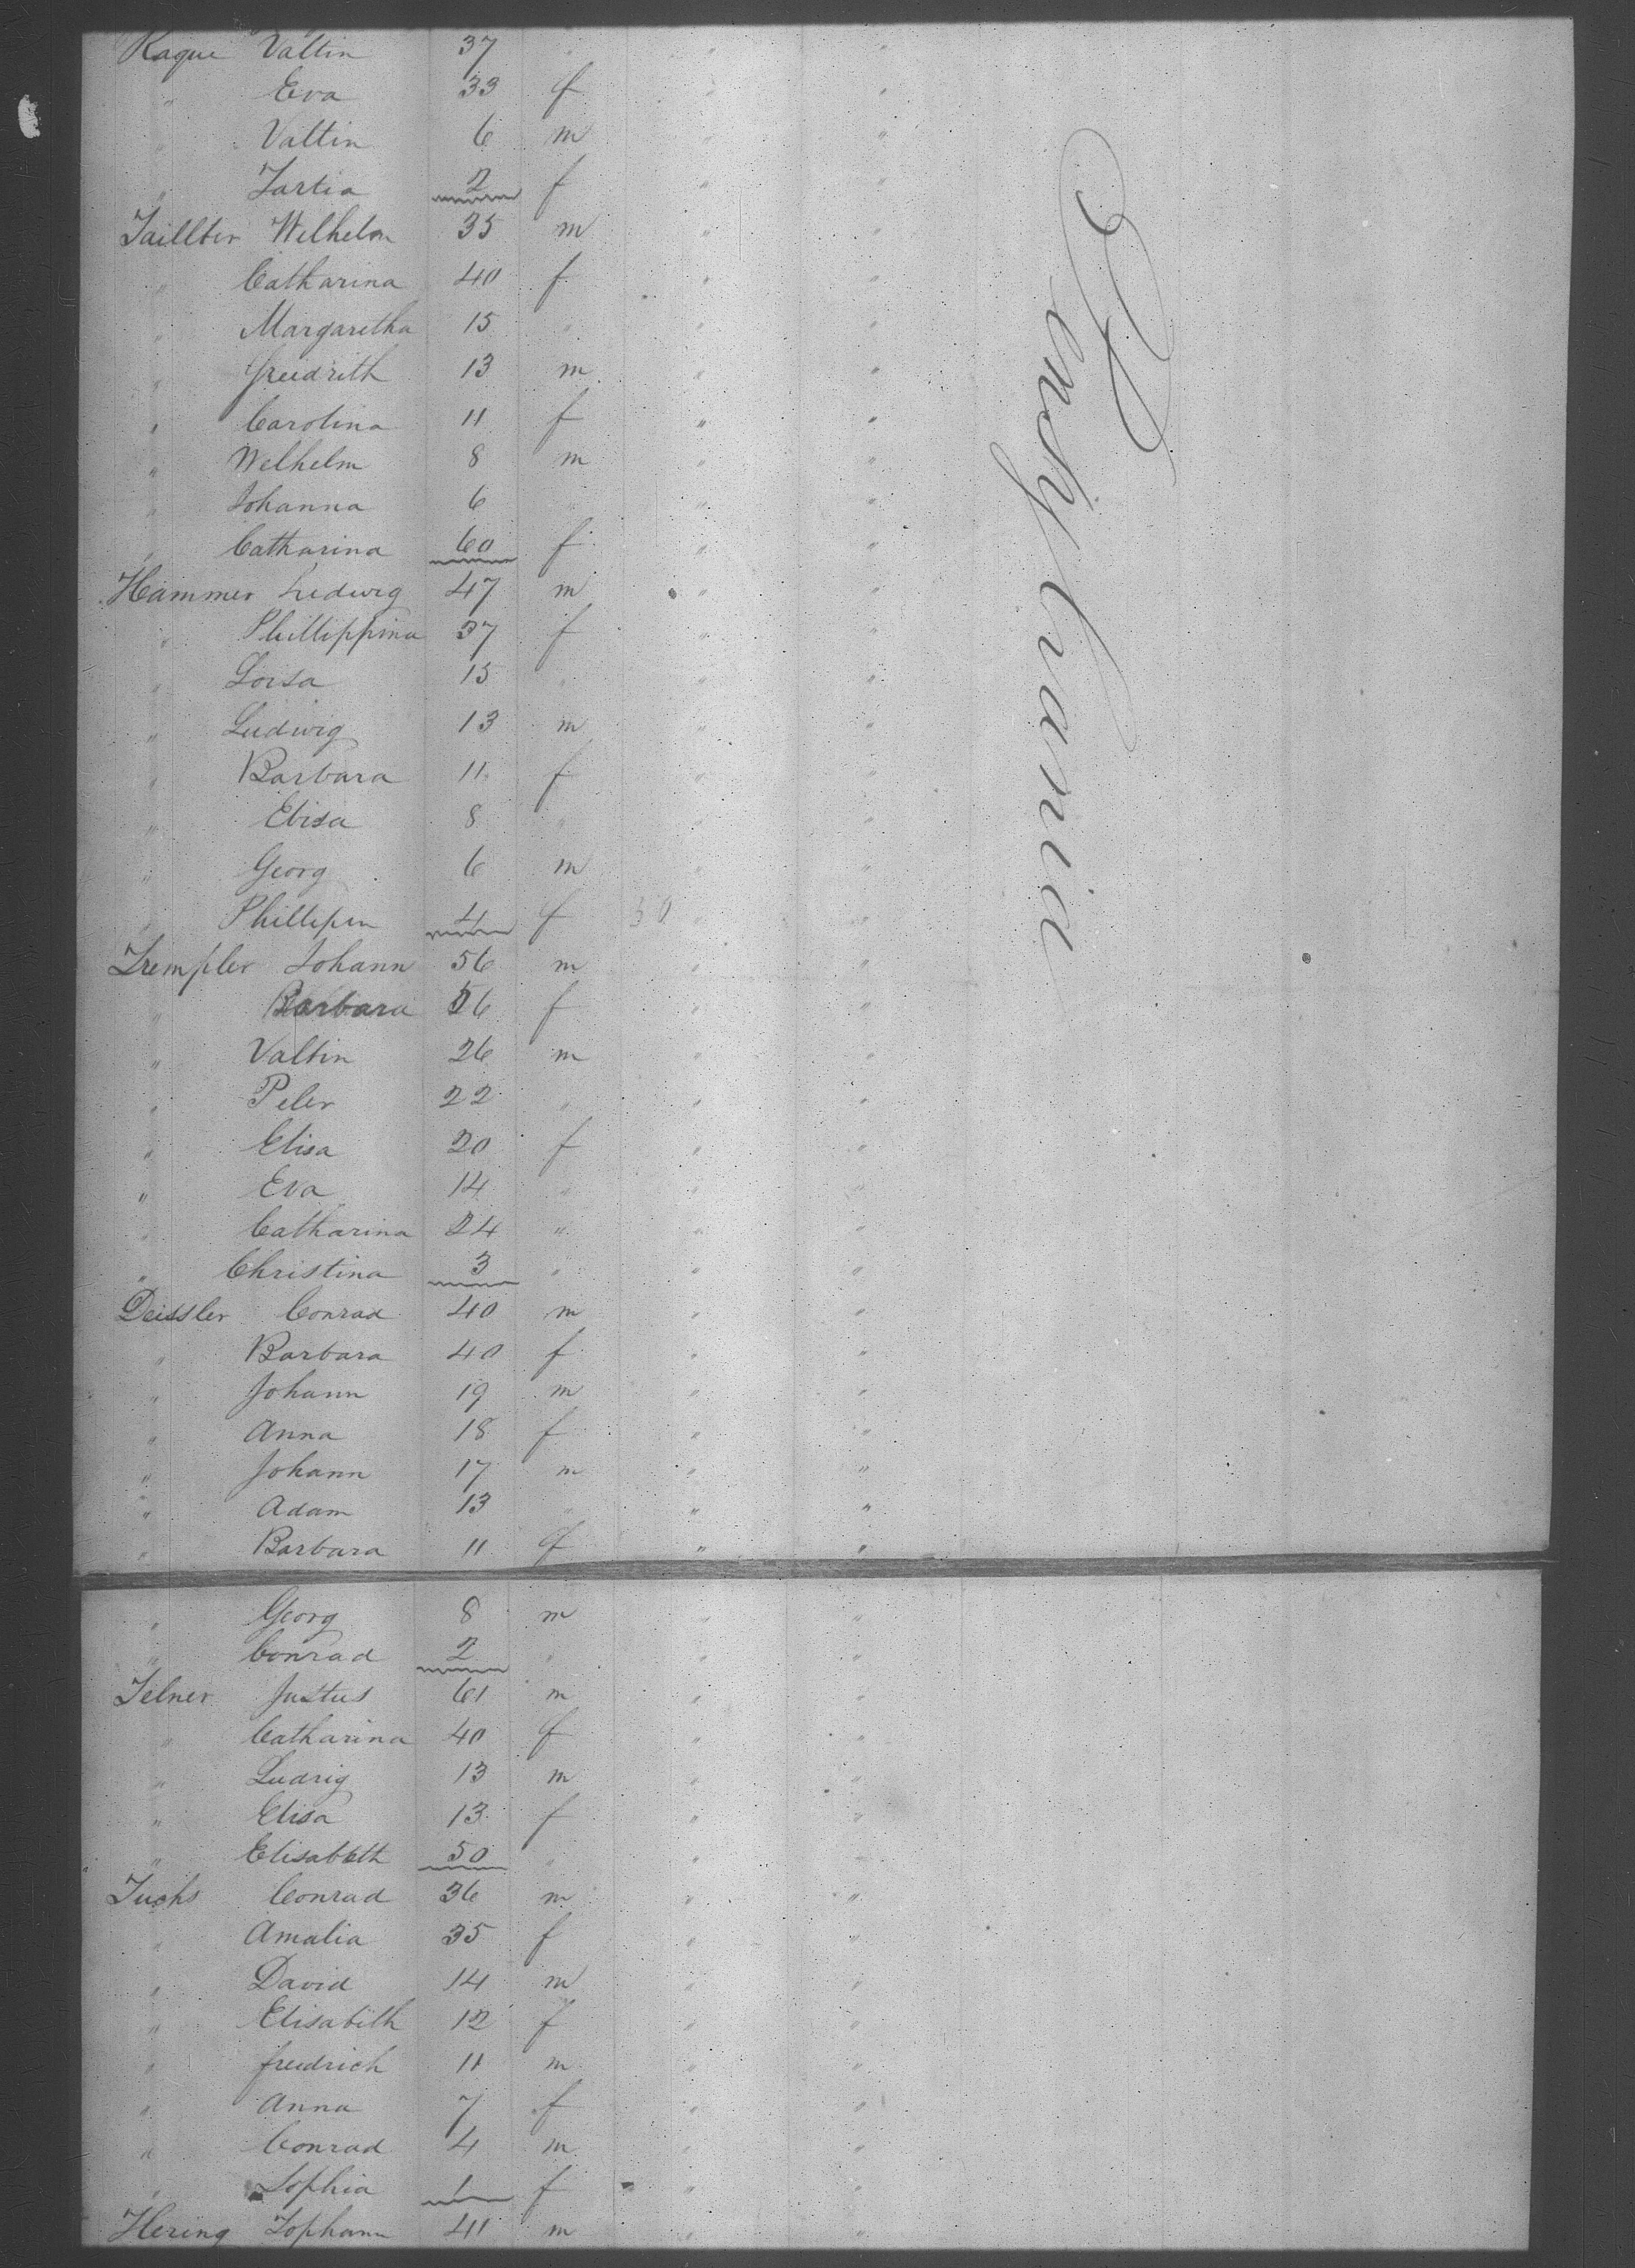 Raque Valtin 37 " " "
" Eva 33 f " "
" Valtin 6 m " "
" Tartia 2 f " "
Taillter Wilhelm 35 m " "
" Catharina 40 f " "
" Margaretha 15 " " "
" Freidrith 13 m " "
" Carolina 11 f " "
" Wilhelm 8 m " "
" Johanna 6 " " "
" Catharina 60 f " "
Hammer Ludwig 47 m " "
" Phillippina 37 f " "
" Loisa 15 " " "
" Ludwig 13 m " "
" Barbara 11 f " "
" Elisa 8 " " "
" Georg 6 m " "
" Phillipin 4 f 30 " "
Trempler Johann 56 m " "
" Barbara 56 f " "
" Valtin 26 m " "
" Peter 22 " " "
" Elisa 20 f " "
" Eva 14 " " "
" Catharina 24 " " "
" Christina 3 " " "
Deissler Conrad 40 m " "
" Barbara 40 f " "
" Johann 19 m " "
" Anna 18 f " "
" Johann 17 m " "
" Adam 13 " " "
" Barbara 11 f " "
" Georg 8 m " "
" Conrad 2 " " "
Telner Justus 61 m " "
" Catharina 40 f " "
" Ludrig 13 m " "
" Elisa 13 f " "
" Elisabeth 50 " " "
Fuchs Conrad 36 m " "
" Amalia 35 f " "
" David 14 m " "
" Elisabith 12 f " "
" freidrich 11 m " "
" Anna 7 f " "
" Conrad 4 m " "
" Sophia 1 f " "
Hering Johann 41 m " "
Pensylvania